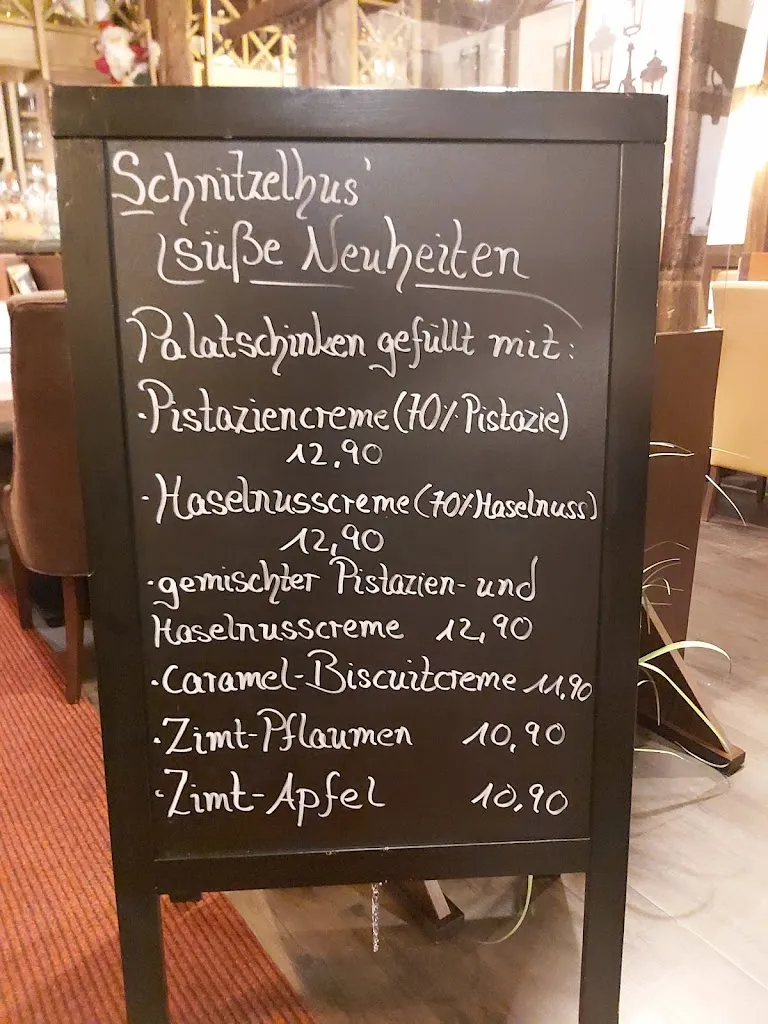 Schnitzelhus'
süße Neuheiten
Palatschinken gefüllt mit:
·Pistaziencreme (70% Pistazie)
12,90
·Haselnusscreme (70% Haselnuss)
12,90
·gemischter Pistazien- und
Haselnusscreme 12,90
·Caramel-Biscuitcreme 11,90
·Zimt-Pflaumen 10,90
·Zimt-Apfel 10,90